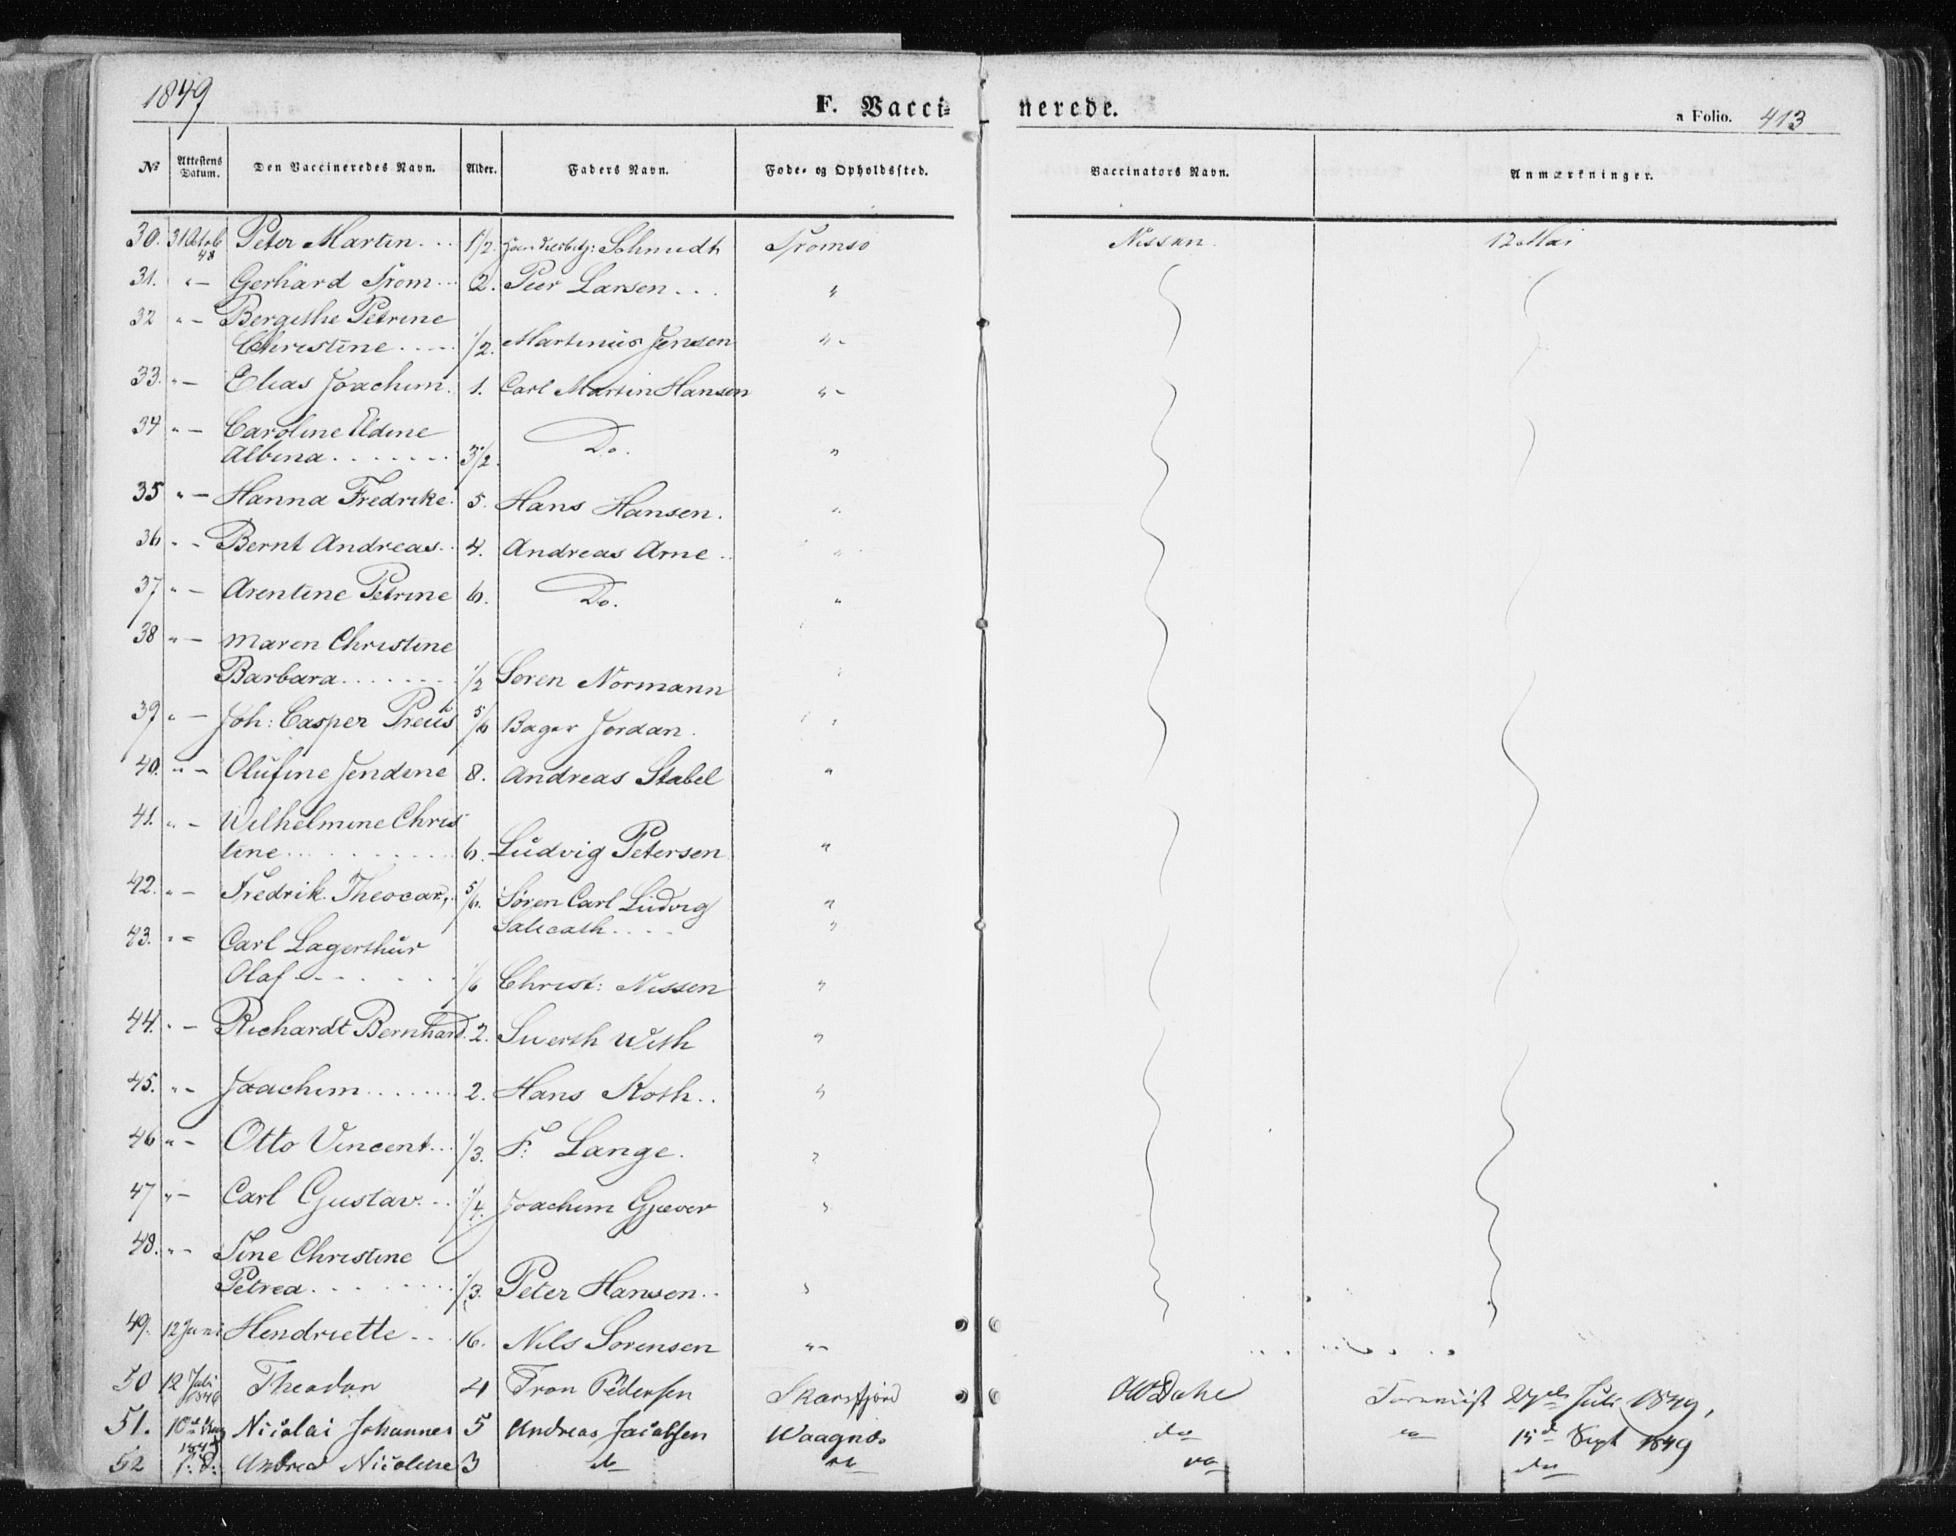 1849
F. Vacci= nerede.
a Folio. 413
No Attestens Datum. Den Vaccineredes Navn. Alder. Faders Navn. Føde- og Opholdssted. Vaccinators Navn. Anmærkninger.
30. 31 Octob 48 Peter Martin 1/2. Schmidt Tromsø Nissen 12 Mai
31. " — Gerhard Trom 2. Peer Larsen "
32 " — Bergithe Petrine
Christine 1/2. Martinus Jensen " -
33. " — Elias Joachim 1. Carl Martin Hansen " -
34 " — Caroline Eldine
Albina 3 1/2. Do. "
35 " — Hanna Fredrike 5. Hans Hansen. "
36 " - Bernt Andreas 4. Andreas Arne "
37 " — Arentine Petrine 6. Do. "
38 " — Maren Christine
Barbara 1/2 Søren Normann "
39 " — Joh: Casper Preus 5/6 Bager Jordan. "
40. " - Olufine Jendine 8. Andreas Stabel "
41. " - Wilhelmine Chris
tine 6. Ludvig Petersen "
42. " - Fredrik Theocar, 5/6. Søren Carl Ludvig "
Salicath "
43. " = Carl Lagerthur
Olaf 1/6 Christ: Nissen "
44. " — Richardt Bernhard. 2. Siverth With "
45. " - Joachim 2. Hans Koth "
46 " - Otto Vincent 1/3. F: Lange. "
47 " — Carl Gustav 1/4. Joachim Gjæver "
48. " — Sine Christine
Petrea 1/3. Peter Hansen "
49. 12 Juni Hendriette 16. Nils Sørensen " -
50 12 Juli 1846 Theodor 4 Tron Pedersen Skarsfjord O W Dahl 27de Juli 1849,
51. 10de 1847 Nicolai Johannes 5 Andreas Jacobsen Waagnæs do 15de Sept 1849
52 Andrea Nicoline 3 do do do do